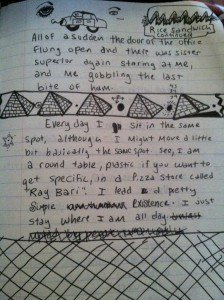 Rice Sandwich
continued
All of a sudden the door of the office
flung open and there was sister
superior again staring at me,
and me gobbling the last
bite of ham.
Every day I sit in the same
spot, although I might move a little
bit basically the same spot. See, I am
a round table, plastic if you want to
get specific, in a Pizza store called
"Ray Bari". I lead a pretty
Existence. I just
stay where I am all day